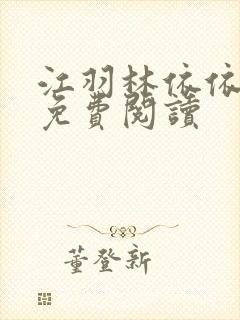 江羽林依依
免費閱讀
董登新